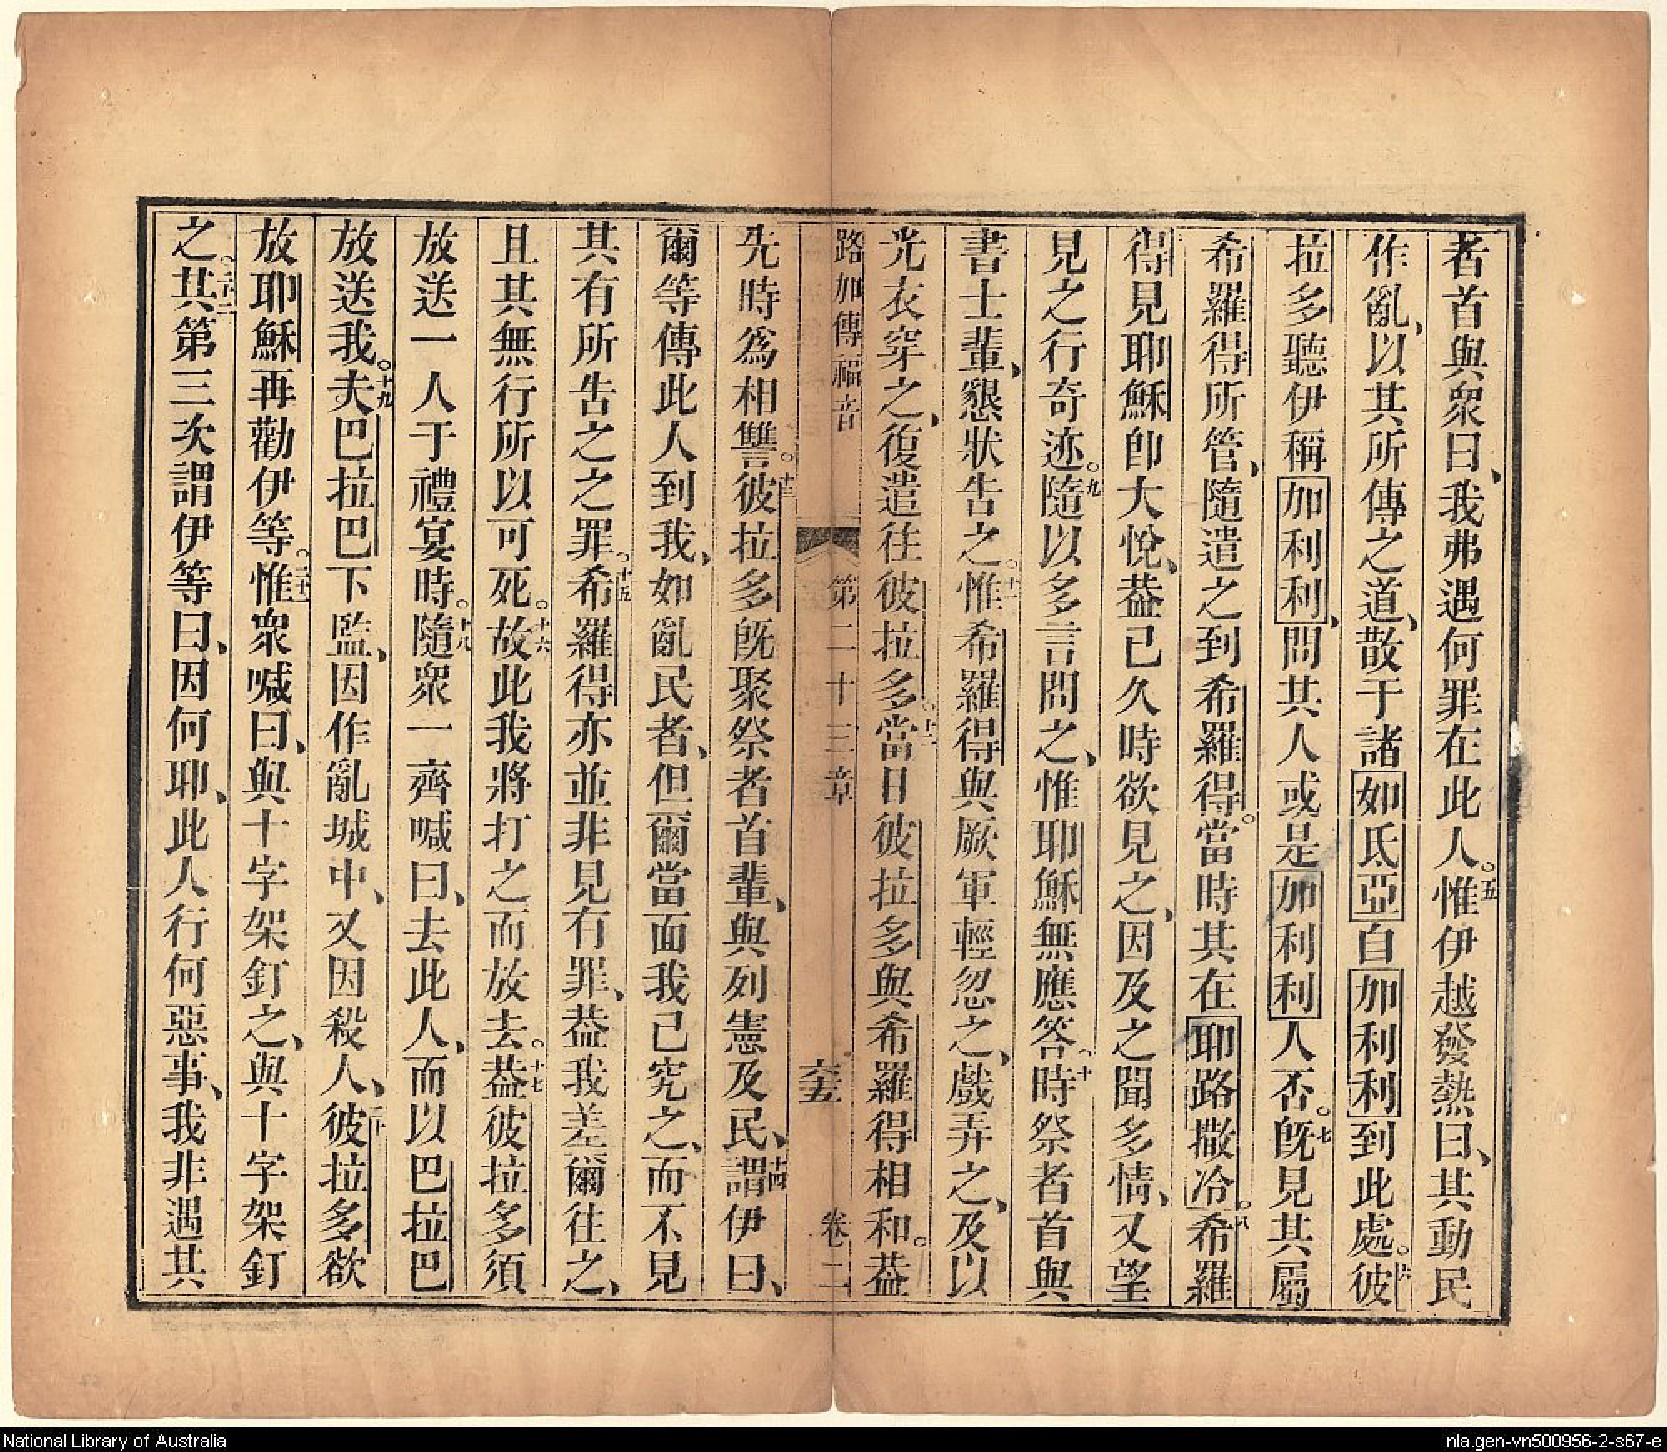 者首與衆曰、我弗遇何罪在此人。五惟伊越發熱曰、其動民
作亂、以其所傳之道、散于諸如氐亞自加利利到此處。六彼
拉多聽伊稱加利利、問其人或是加利利人否。七既見其屬
希羅得所管、隨遣之到希羅得。當時其在耶路撒冷。八希羅
得見耶穌卽大悅、葢已久時欲見之、因及之聞多情、又望
見之行奇迹。九隨以多言問之、惟耶穌無應答。十時祭者首與
書士輩、懇狀告之。十一惟希羅得與厥軍輕忽之、戲弄之、及以
光衣穿之、復遣往彼拉多。十二當日彼拉多與希羅得相和。葢
路加傳福音 第二十三章 六五 卷二
先時爲相讐。十三彼拉多既聚祭者首輩、與列憲及民、十四謂伊曰、
爾等傳此人到我、如亂民者、但爾當面我已究之、而不見
其有所告之之罪。十五希羅得亦並非見有罪、葢我差爾往之、
且其無行所以可死。十六故此我將打之而放去。十七葢彼拉多須
放送一人于禮宴時。十八隨衆一齊喊曰、去此人、而以巴拉巴
放送我。十九夫巴拉巴下監、因作亂城中、又因殺人、二十彼拉多欲
放耶穌再勸伊等。二十一惟衆喊曰、與十字架釘之、與十字架釘
之。二十二其第三次謂伊等曰、因何耶、此人行何惡事、我非遇其
National Library of Australia
nla.gen-vn500956-2-s67-e